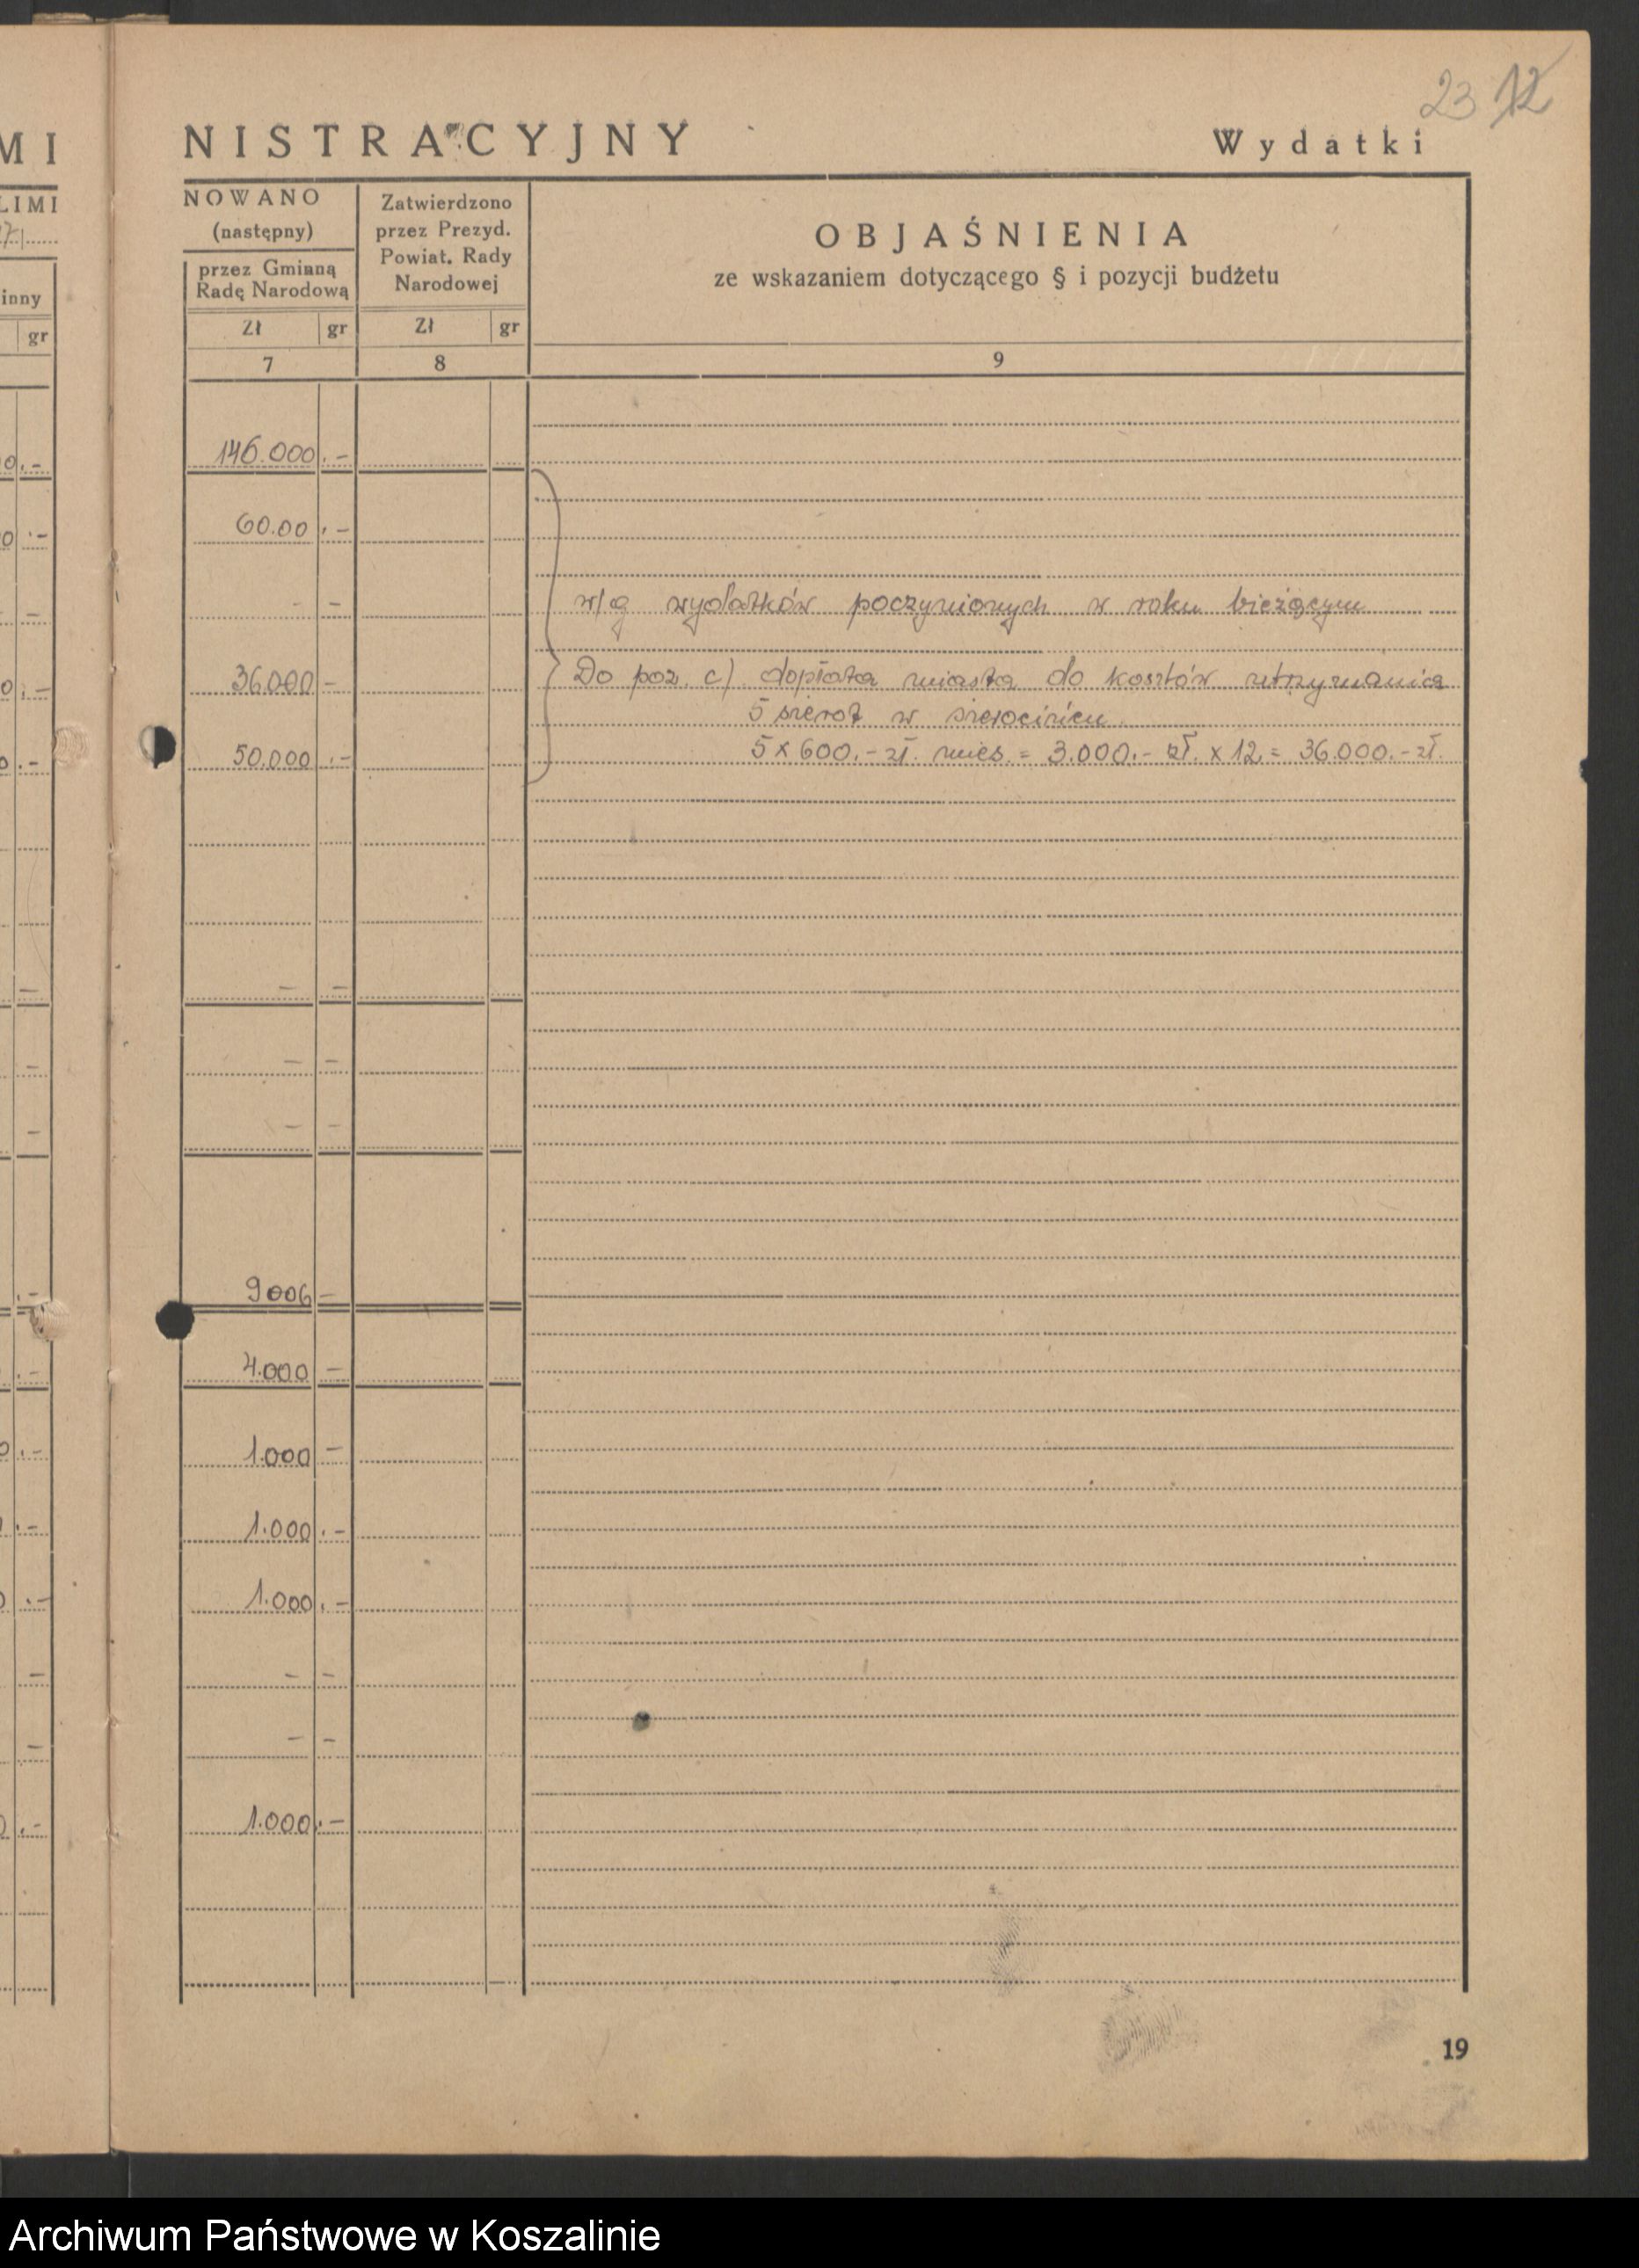 23 12
MI
NISTRACYJNY
Wydatki
LIMI
NOWANO
(następny)
przez Gminną
Radę Narodową
Zatwierdzono
przez Prezyd.
Powiat. Rady
Narodowej
OBJAŚNIENIA
ze wskazaniem dotyczącego § i pozycji budżetu
inny
gr
Zł gr Zł gr
7 8 9
146.000 .-
60.00 .-
- -
w/g wydatków poczynionych w roku bieżącym
36.000 -
Do poz. c) dopłata miasta do kosztów utrzymania
5 sierot w sierocińcu
50.000 .-
5 x 600.- zł. mies. = 3.000.- zł. x 12 = 36.000.- zł.
- -
- -
- -
9006 -
4.000 -
1.000 -
1.000 .-
1.000 .-
- -
- -
1.000 .-
19
Archiwum Państwowe w Koszalinie